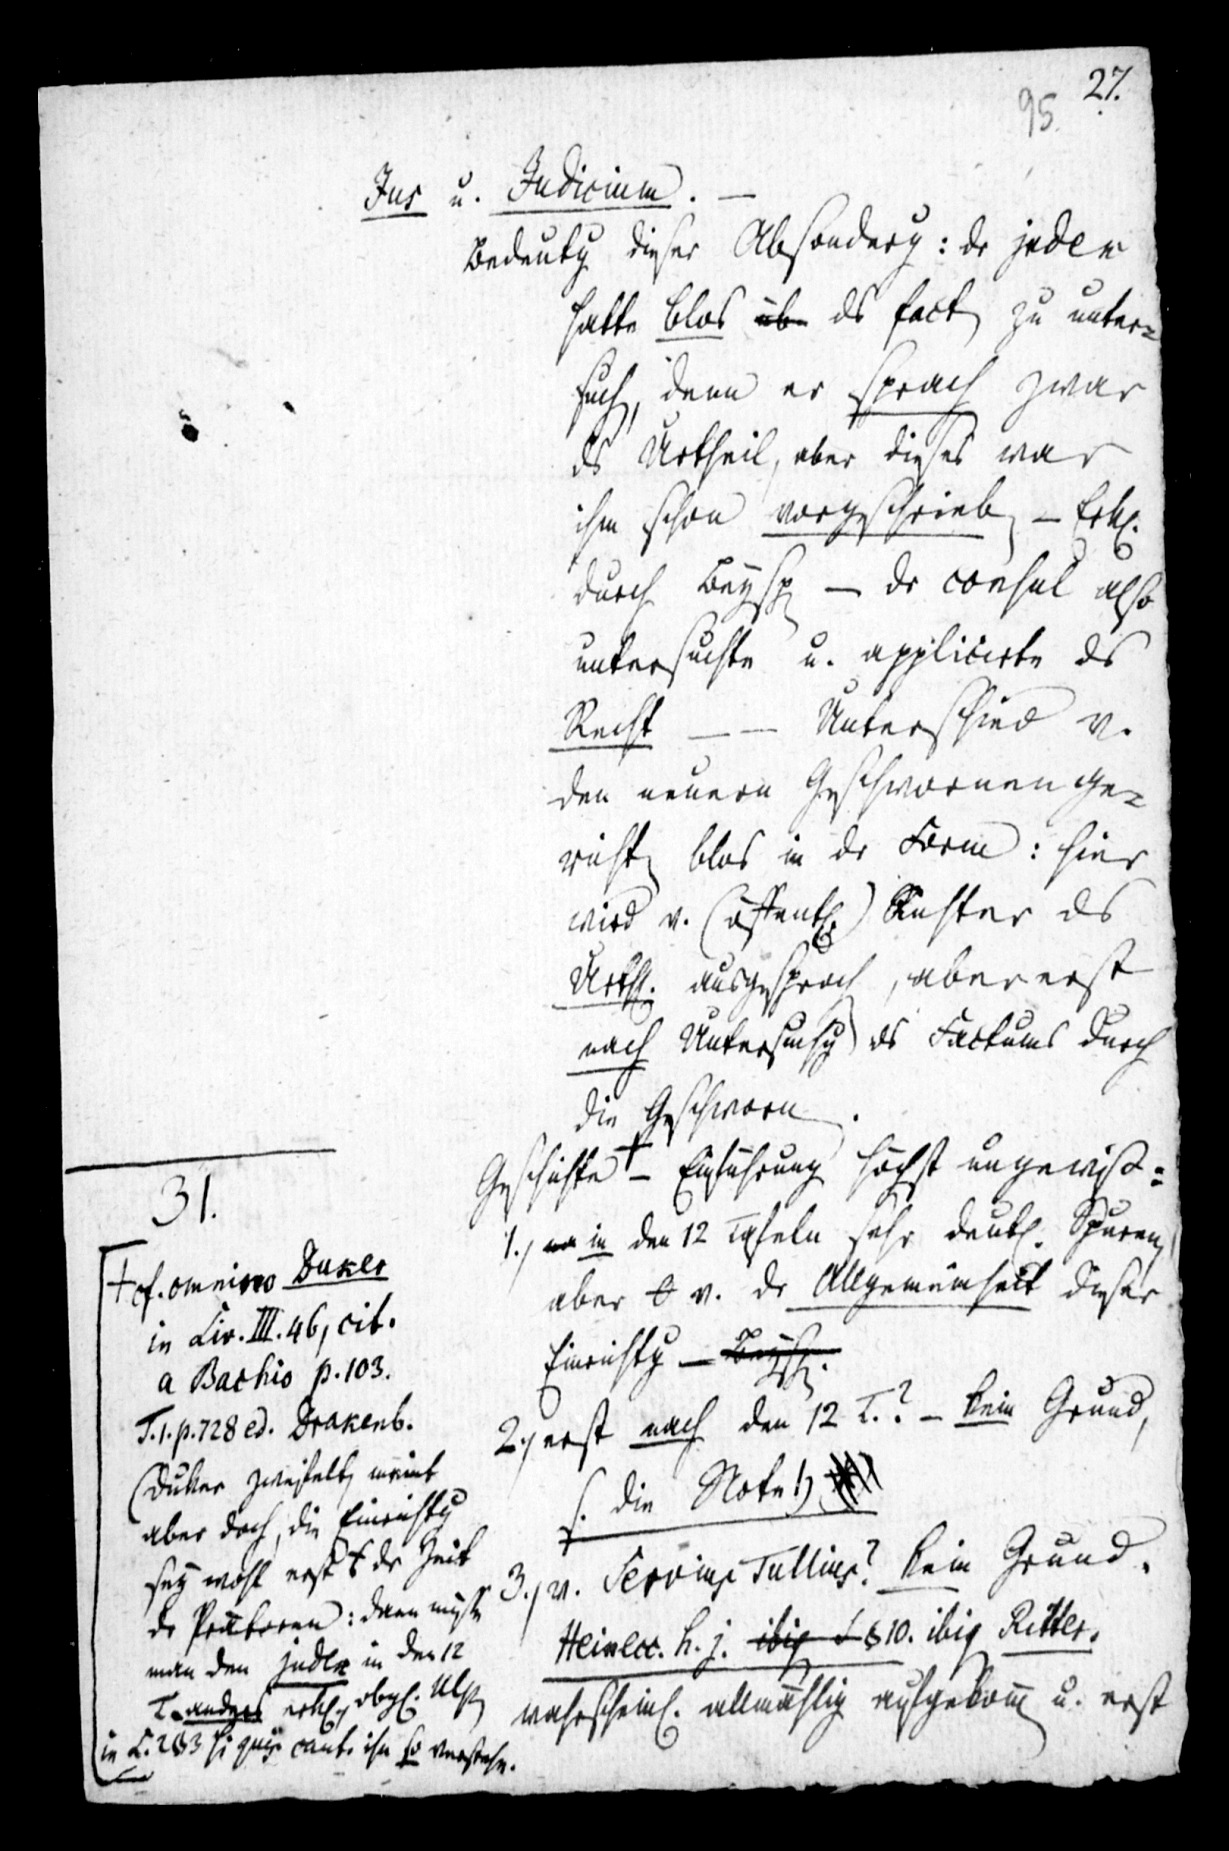 27.
95.
Jus u. Judicium. —
Bedeutg dieser Absonderg: dr judex
hatte blos üb ds fact zu unter=
such, denn er sprach zwar
ds Urtheil, aber dieses war
ihm schon vorgeschrieb — Erkl.
durch Beysp — dr consul also
untersuchte u. applicirte ds
Recht — — Unterschied v.
den neuern Geschwornenge=
richt blos in dr Form: hier
wird v. (öffentl.) Richter ds
Urthl. ausgesproch, aber erst
nach Untersuchg ds Factums durch
die Geschworn.
Geschichte + — Einführung höchst ungewiß:
1., in den 12 Tafeln sehr deutl. Spuren,
aber v. dr Allgemeinheit dieser
Einrichtg — Beysp.
2., erst nach den 12 T.? — kein Grund,
s. die Note 1)
3., v. Servius Tullius? kein Grund.
Heinecc. h. j. ibiq § 10. ibiq Ritter.
wahrscheinl. allmählig aufgekomm u. erst
31.
+ cf. omnino Duker
in Liv. III. 46, cit.
a Bachio p. 103.
T. 1. p. 728 ed. Drakenb.
(Duker zweifelt, meint
aber doch, die Einrichtg
sey wohl erst dr Zeit
dr Prätoren: dann müßte
man den judex in den 12
T. anders erkl., obgl. Ulp
in L. 2 § 3 si quis caut. ihn so verstehe.